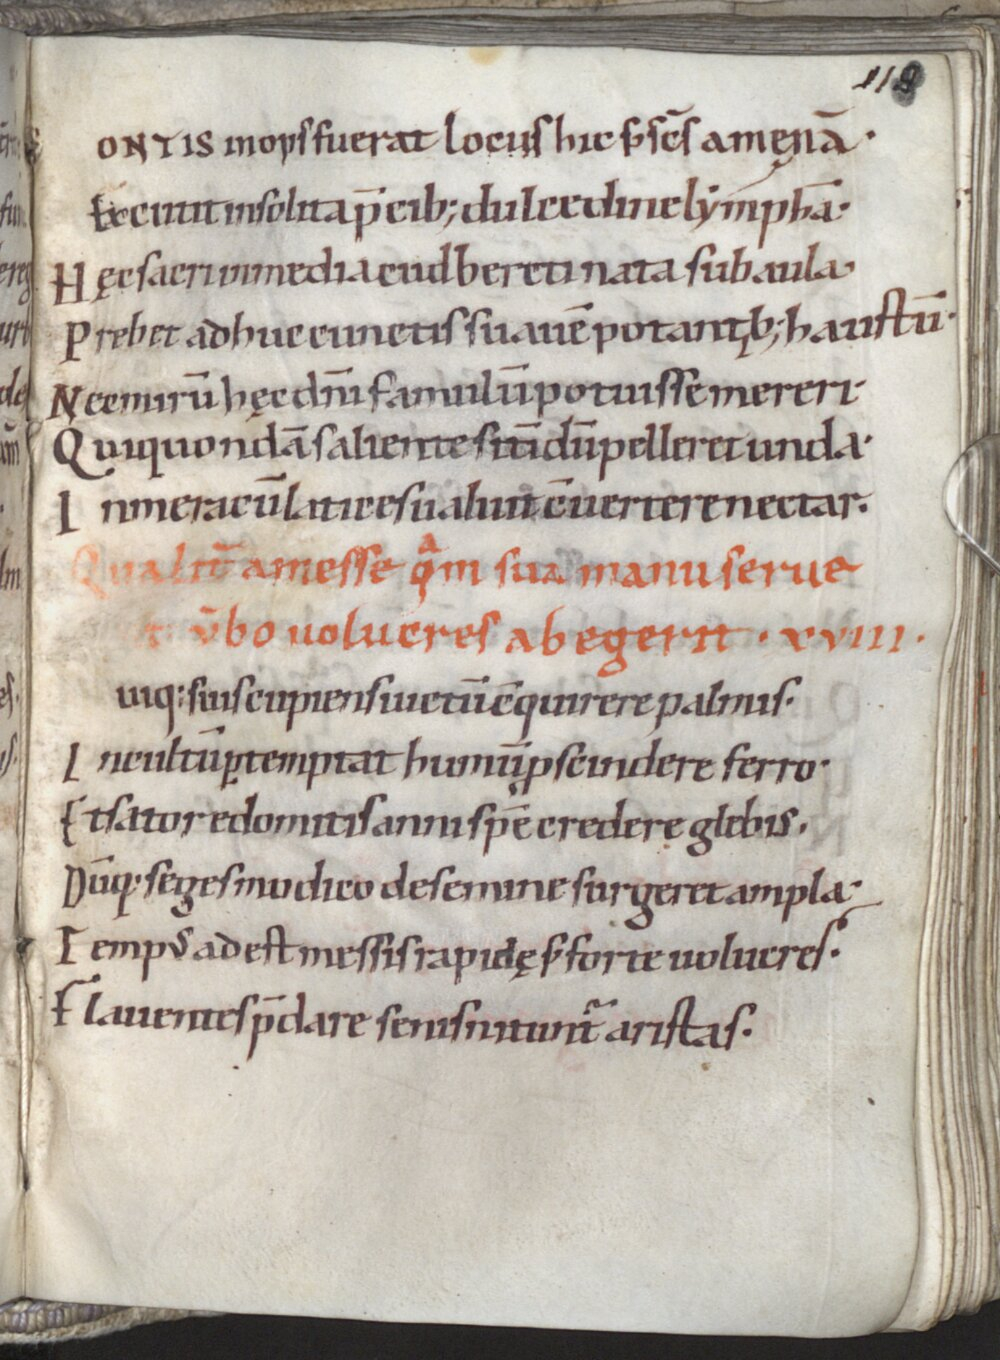 119
ONTIS inops fuerat locus hic s; sc̄s amęnā·
Excutit insolita p̄cib; dulcedine lẏmphā·
Hęc sacri in media cud beret nata sub aula·
Prebet adhuc cunctis suauē potantib; haustū·
Nec mirū hęc dn̄i famulū potuisse mereri·
Qui quondā saliente sitī dū pelleret unda·
In meracū latices ualuit cōuertere nectar.
Qualit̄ a messe quā sua manu serue
v̄bo uolucres abegerit · xviii ·
uiq: suis cupiens uictū ēquirere palmis·
Incultū ꝑtemptat humū ꝓscindere ferro·
Et sator edomitis anni spē credere glebis.
Dūq· seges modico de semine surgeret ampla·
Tempus adest messis rapidę s; forte uolucres·
Flauentes p̄dare senis nitunt̄ aristas·